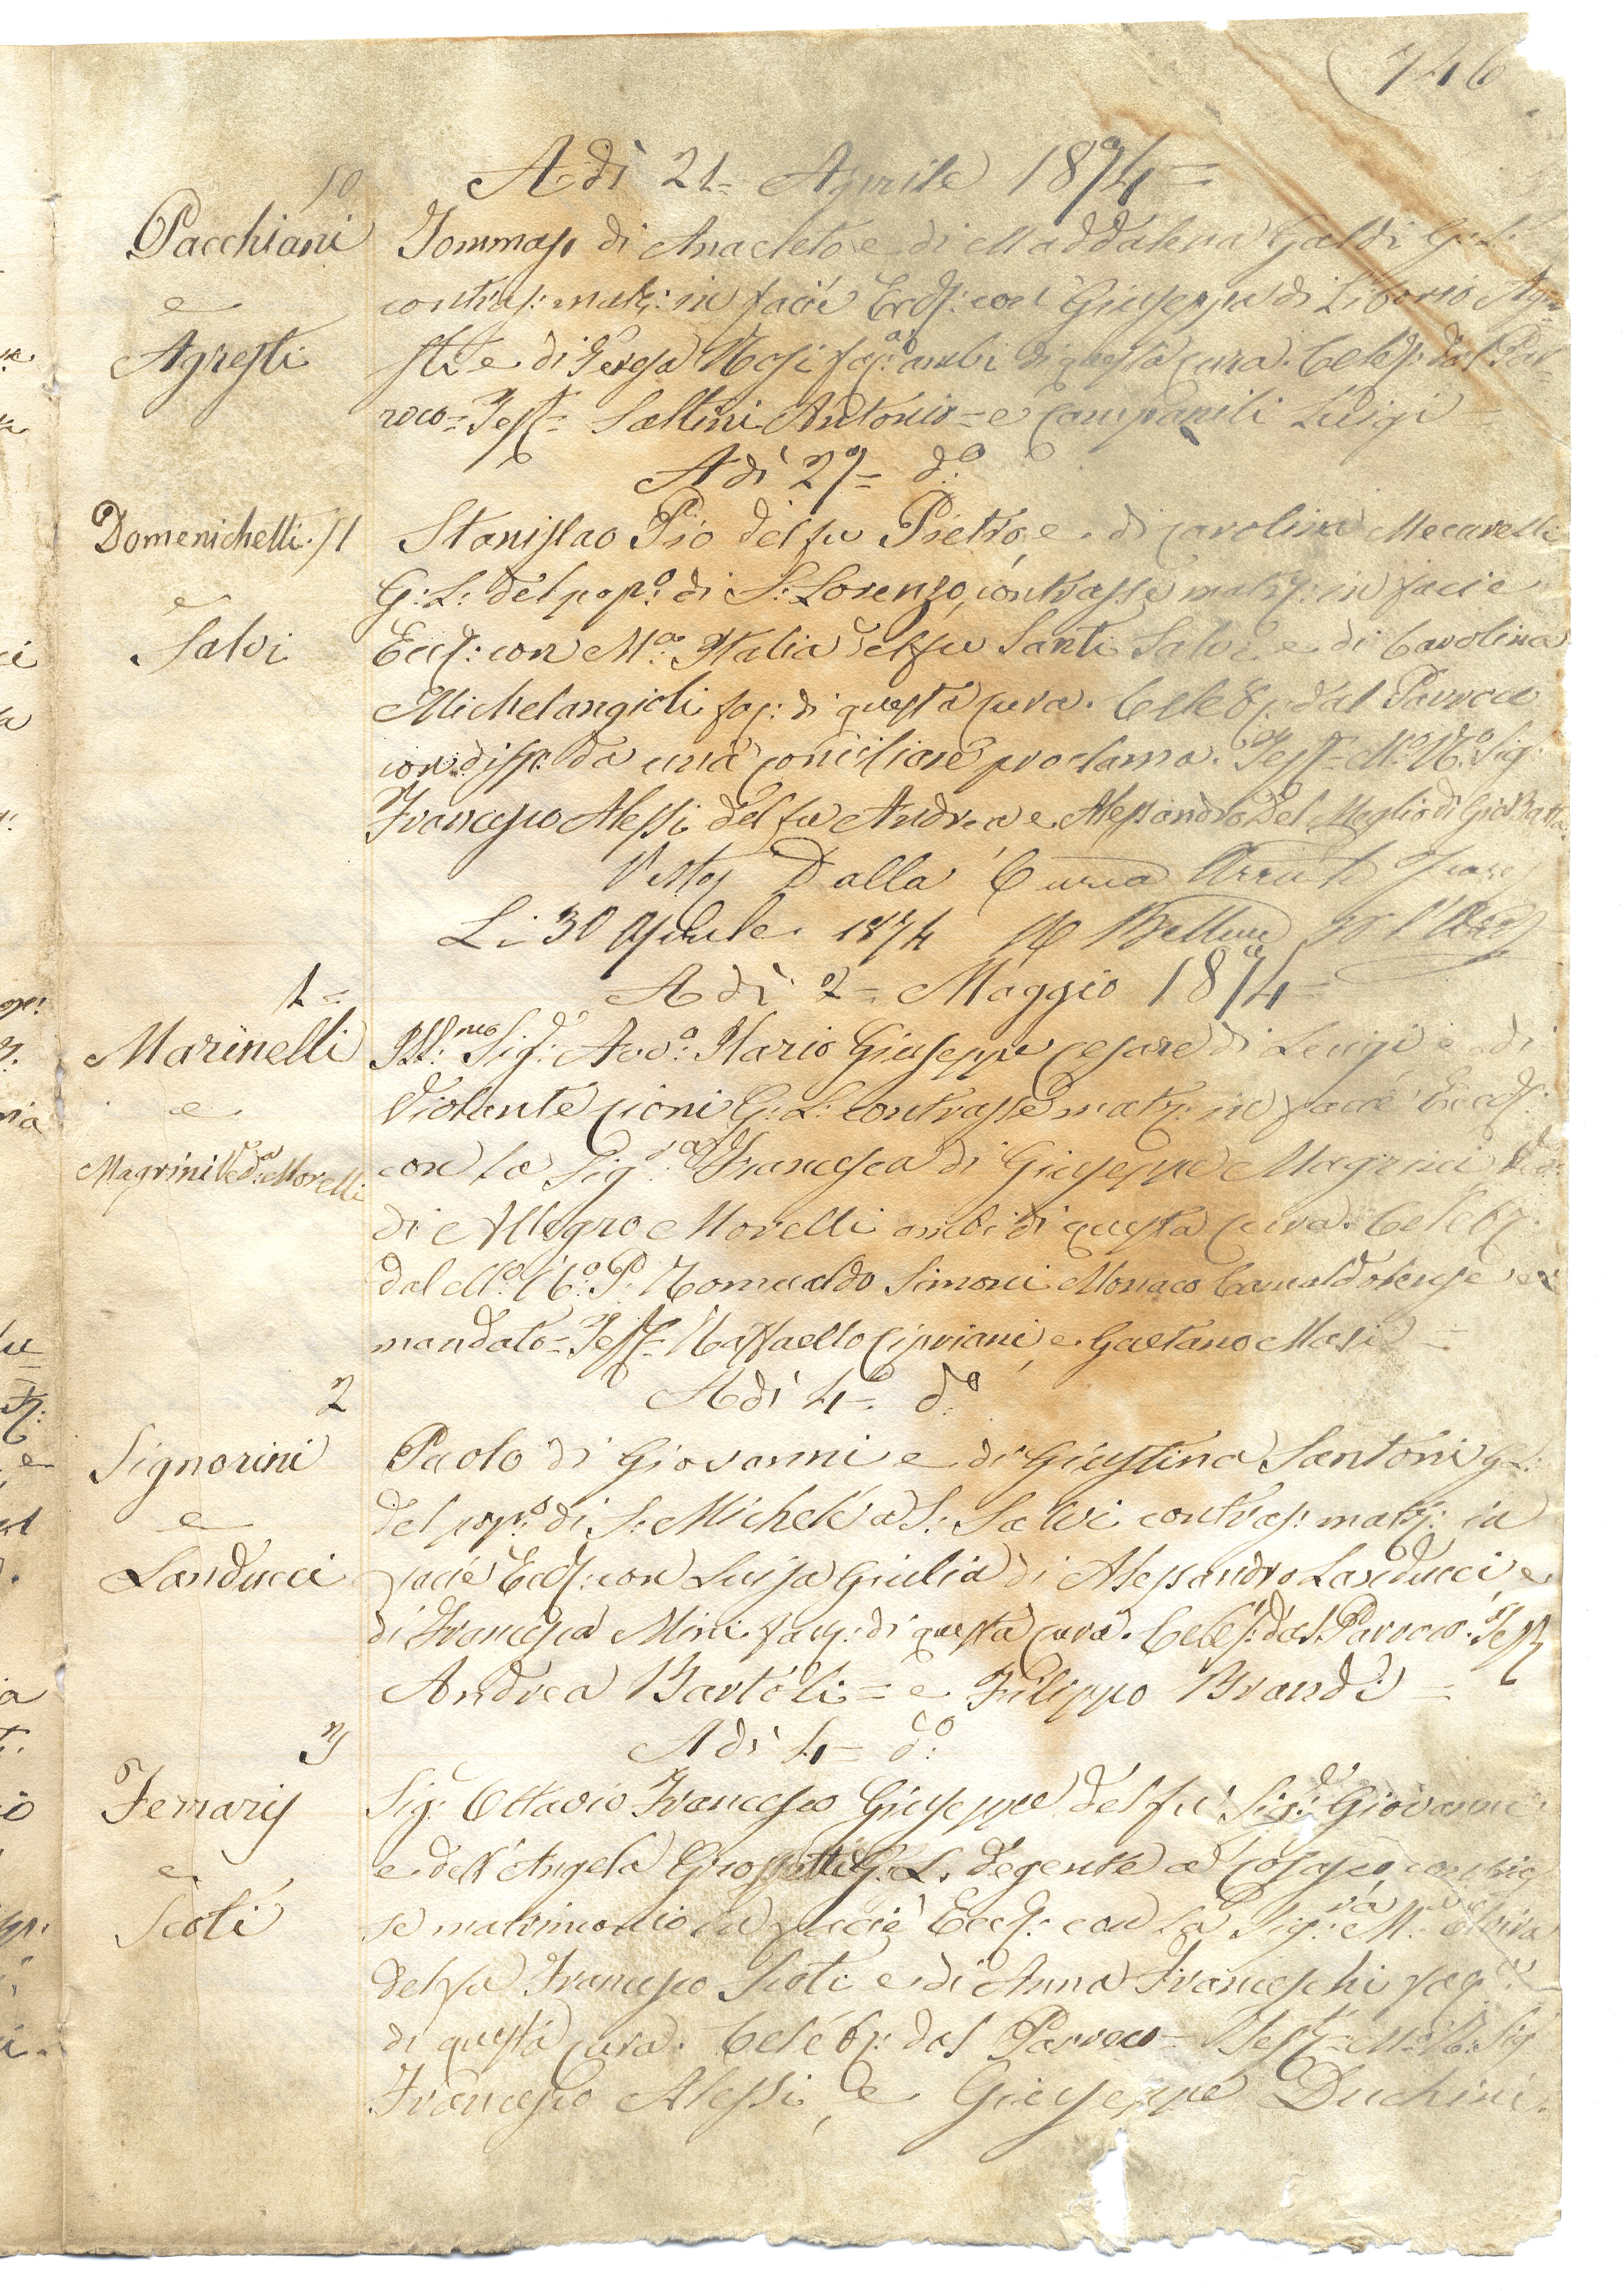 746
Adì 21= Aprile 1874=
50
Pacchiani
e
Agresti
Tommaso di Anacleto e di Maddalena Galdi G: L:
contras: matr: in facie Eccl: con Giuseppa di Liborio Agre=
sti e di Teresa Masi fag: ambi di questa cura. Celeb: dal Par=
roco= Test= Saltini Antonio= e Campanili Luigi=
Adì 27= d.o
Domenichelli. 51
e
Salvi
Stanislao Pio del fu Pietro, e di Carolina Mecarelli
G: L: del pop.o di S: Lorenzo, contrasse matr: in facie
Eccl: con M.a Italia del fu Santi Salvi e di Carolina
Michelangioli fag: di questa cura. Celeb: dal Parroco
con disp. da una conciliare proclama. Test= M.o R.o Sig:
Francesco Alessi del fu Andrea e Alessandro Del Meglio di Gio Batta
Visto Dalla Curia
Li 30 Aprile 1874
Adì 2= Maggio 1874=
1=
Marinelli
e
Magrini Ved.a Morelli
Ill:mo Sig: Avv.o Ilario Giuseppe Cesare di Luigi e di
Violante Cioni G: L: contrasse matr: in facie Eccl:
con la Sig.ra Francesca di Giuseppe Magrini Ved:
di Allegro Morelli ambi di questa cura. Celeb:
dal M.o R.o P. Romualdo Simoni Monaco Camaldolense ex
mandato= Test= Raffaello Cipriani, e Gaetano Masi=
Adì 4= d.o
2
Signorini
e
Landucci
Paolo di Giovanni e di Giustina Santoni G: L:
del pop.o di S: Michele a S: Salvi contras: matr: in
facie Eccl: con Luisa Giulia di Alessandro Landucci e
di Francesca Mini fag: di questa cura. Celeb: dal Parroco. Test
Andrea Bartoli= e Filippo Brandi=
Adì 4= d.o
3
Ferrarij
e
Scoti
Sig: Ottavio Francesco Giuseppe del fu Sig: Giovanni
e dell'Angela G: L. degente a
se matrimonio in facie Eccl: con la Sig:ra M.a Elvira
del fu Francesco Scoti e di Anna Franceschi fag.
di questa cura. Celeb: dal Parroco= Test= M.o R.o Sig:
Francesco Alessi, e Giuseppe Duchini.